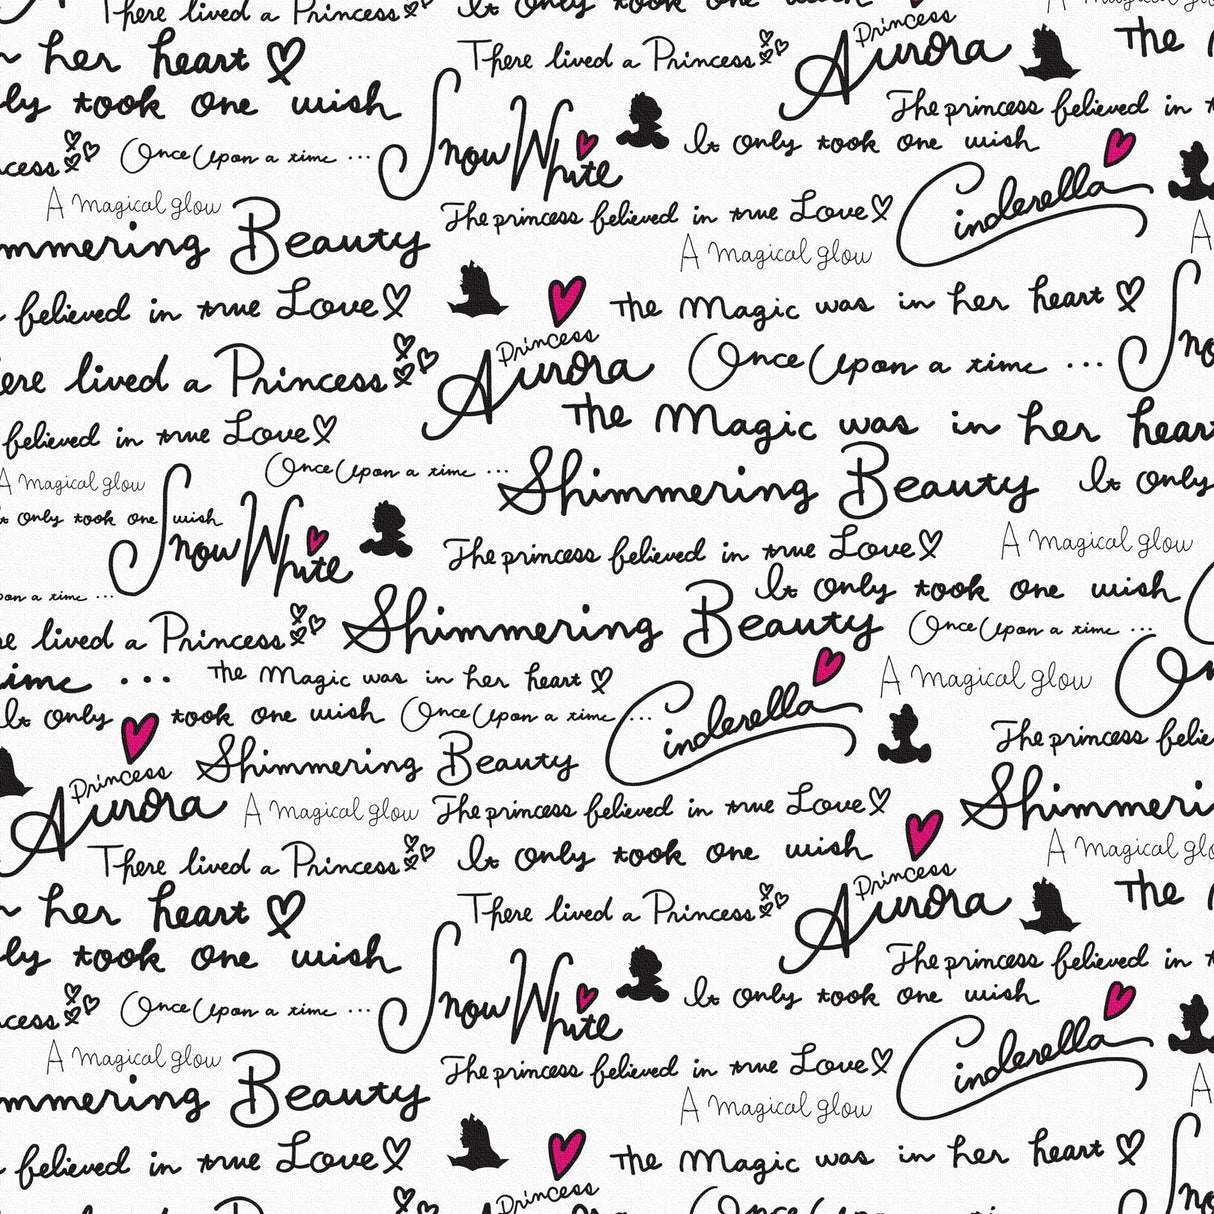 There lived a Princess It only took one wish A magical glow
n her heart There lived a Princess Princess Aurora The M
ly took one wish The princess believed in t
Snow White It only took one wish
ncess Once Upon a time ... Cinderella
A magical glow The princess believed in true Love A
mmering Beauty A magical glow
believed in true Love The Magic was in her heart Sno
ere lived a Princess Princess Aurora Once Upon a time ...
believed in true Love The Magic was in her hear
A magical glow Once Upon a time ... Shimmering Beauty It only
It only took one wish Snow White
The princess believed in true Love A magical glow
pon a time ... It only took one wish
re lived a Princess Shimmering Beauty Once Upon a time ...
time ... The Magic was in her heart A magical glow On
It only took one wish Once Upon a time ... Cinderella
Shimmering Beauty The princess belie
Princess Aurora A magical glow The princess believed in true Love Shimmeri
There lived a Princess It only took one wish A magical glo
n her heart There lived a Princess Princess Aurora The M
ly took one wish The princess believed in t
Snow White It only took one wish
ncess Once Upon a time ... Cinderella
A magical glow The princess believed in true Love A
mmering Beauty A magical glow
believed in true Love The Magic was in her heart Sno
Princess